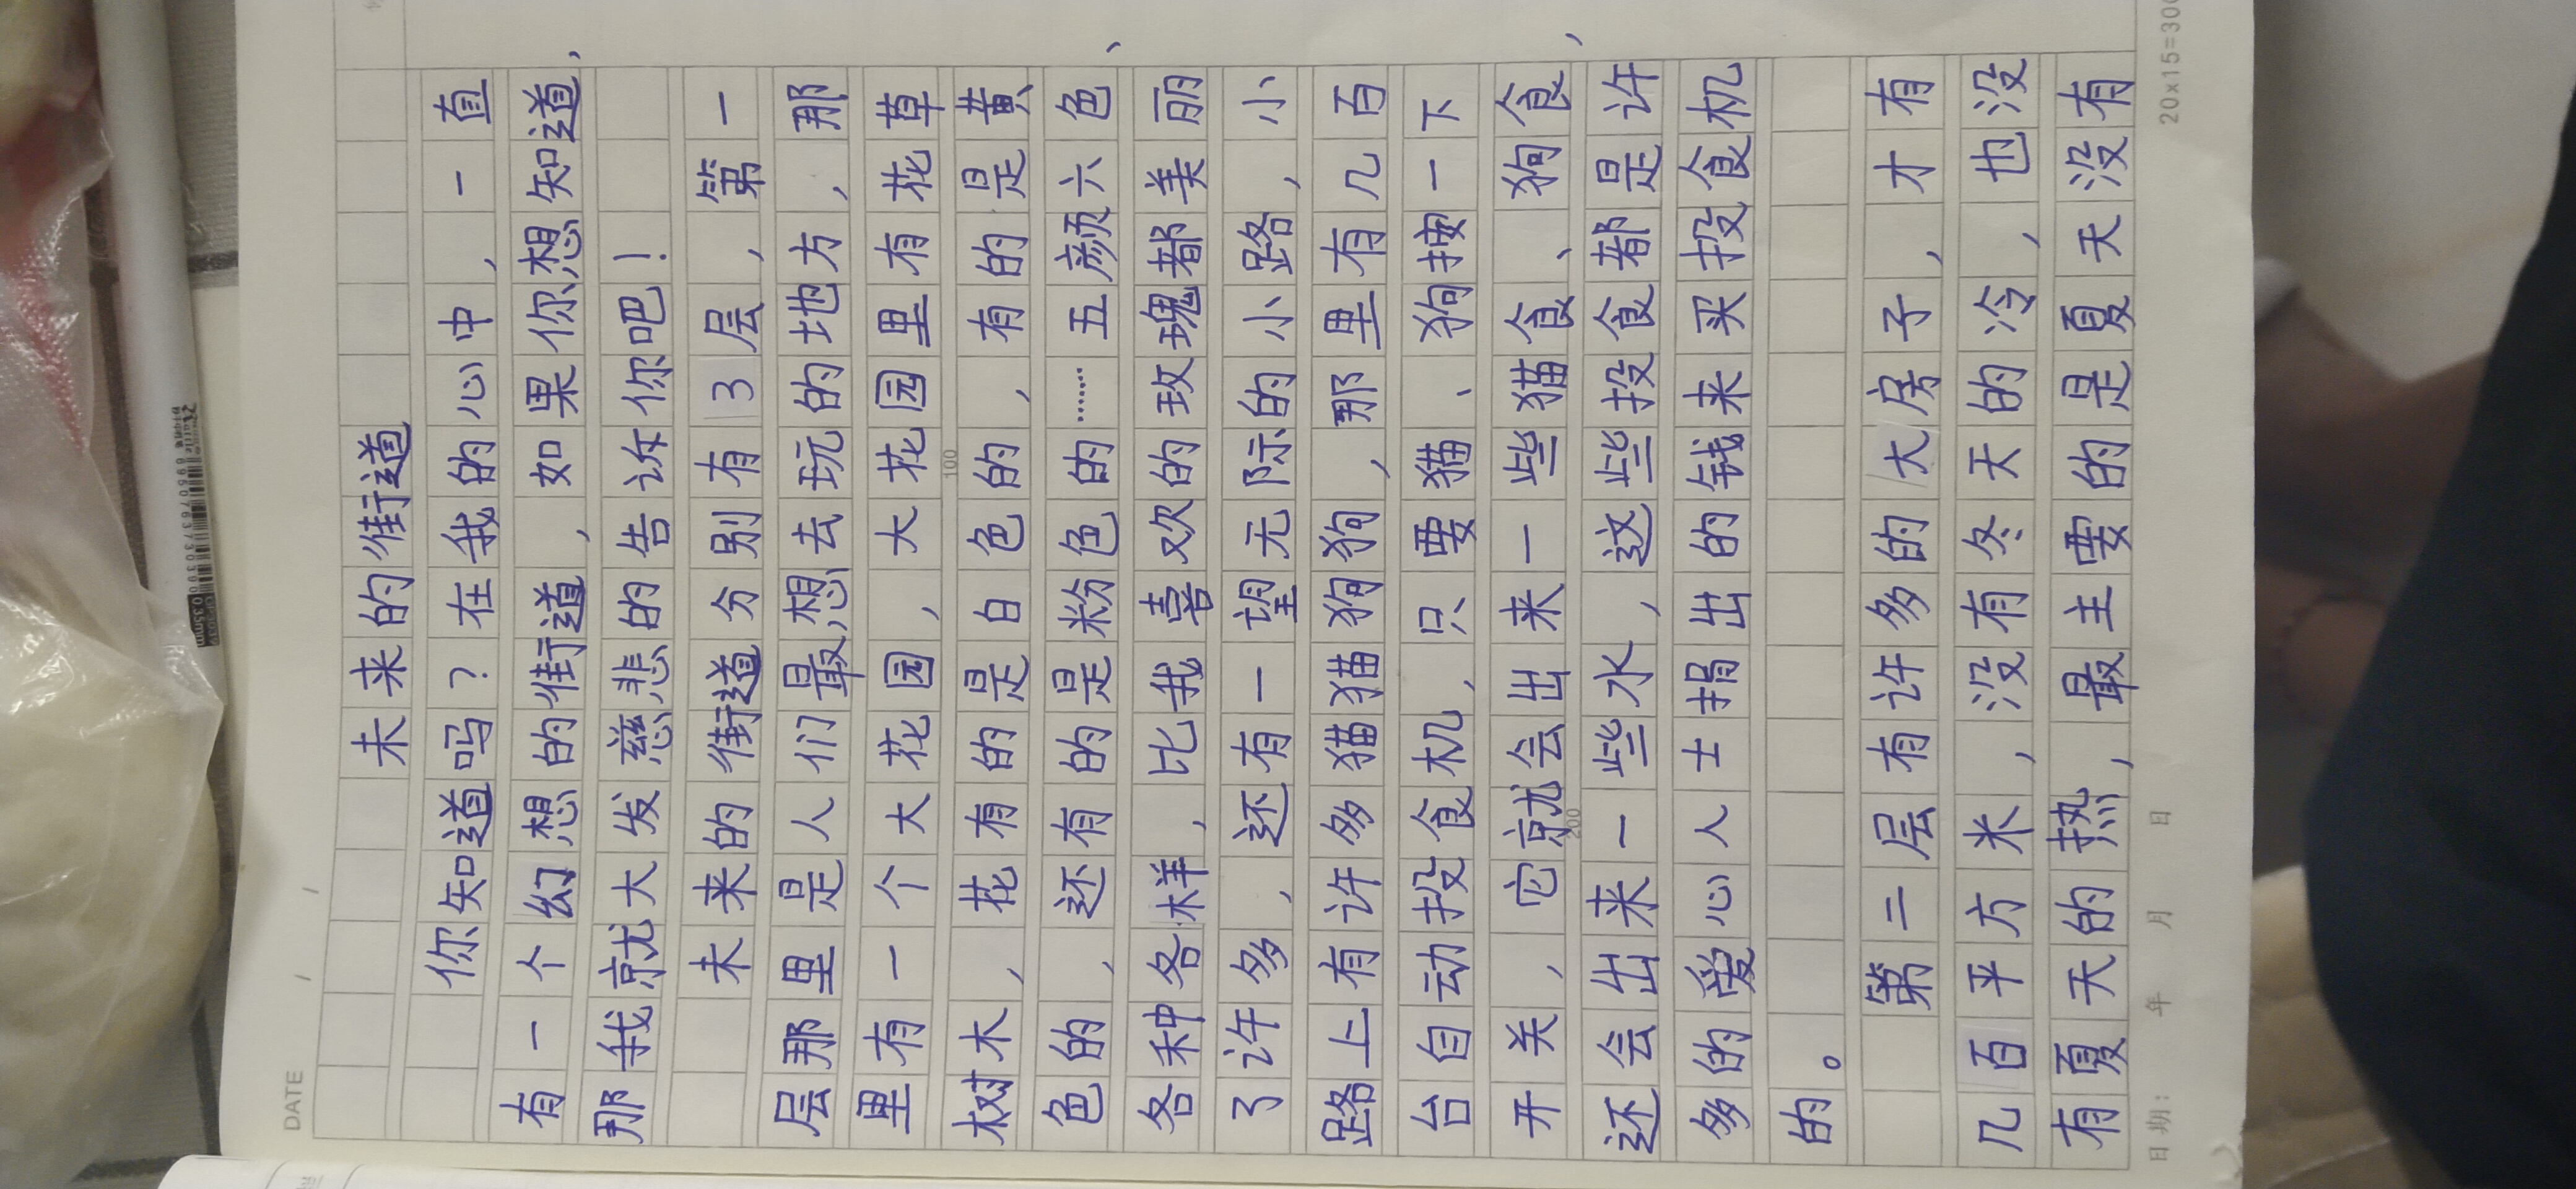 DATE / /
未来的街道
你知道吗？在我的心中，一直
有一个幻想的街道，如果你想知道，
那我就大发慈悲的告诉你吧！
未来的街道分别有3层，第一
层那里是人们最想去玩的地方，那
里有一个大花园，大花园里有花草
树木，花有的是白色的，有的是黄
色的，还有的是粉色的……五颜六色、
各种各样，比我喜欢的玫瑰都美丽
了许多，还有一望无际的小小路，小
路上有许多猫猫狗狗，那里有几百
台自动投食机，只要猫、狗按一下
开关，它就会出来一些猫食、狗食，
还会出来一些水，这些投食都是许
多的爱心人士捐出的钱来买投食机
的。
第二层有许多的大房子，才有
几百平方米，没有冬天的冷，也没
有夏天的热，最主要的是夏天没有
100
200
20x15=300
日期： 年 月 日
0.35mm